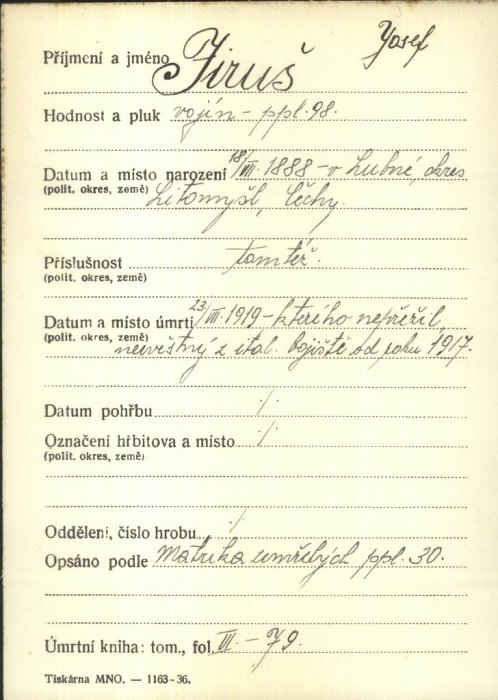 Josef
Příjmení a jméno Jiruš
Hodnost a pluk vojín – ppl. 98.
Datum a místo narození 18/VII. 1888 – v Lubné, okres
(polit. okres, země) Litomyšl, Čechy.
Příslušnost tamtéž.
(polit. okres, země)
Datum a místo úmrtí 23/VII. 1919 – kterého nepřežil,
(polit. okres, země) nezvěstný z ital. bojiště od roku 1917.
Datum pohřbu ./.
Označení hřbitova a místo ./.
(polit. okres, země)
Oddělení, číslo hrobu ./.
Opsáno podle Matrika zemřelých ppl. 30.
Úmrtní kniha: tom., fol. III. – 79.
Tiskárna MNO. — 1163-36.